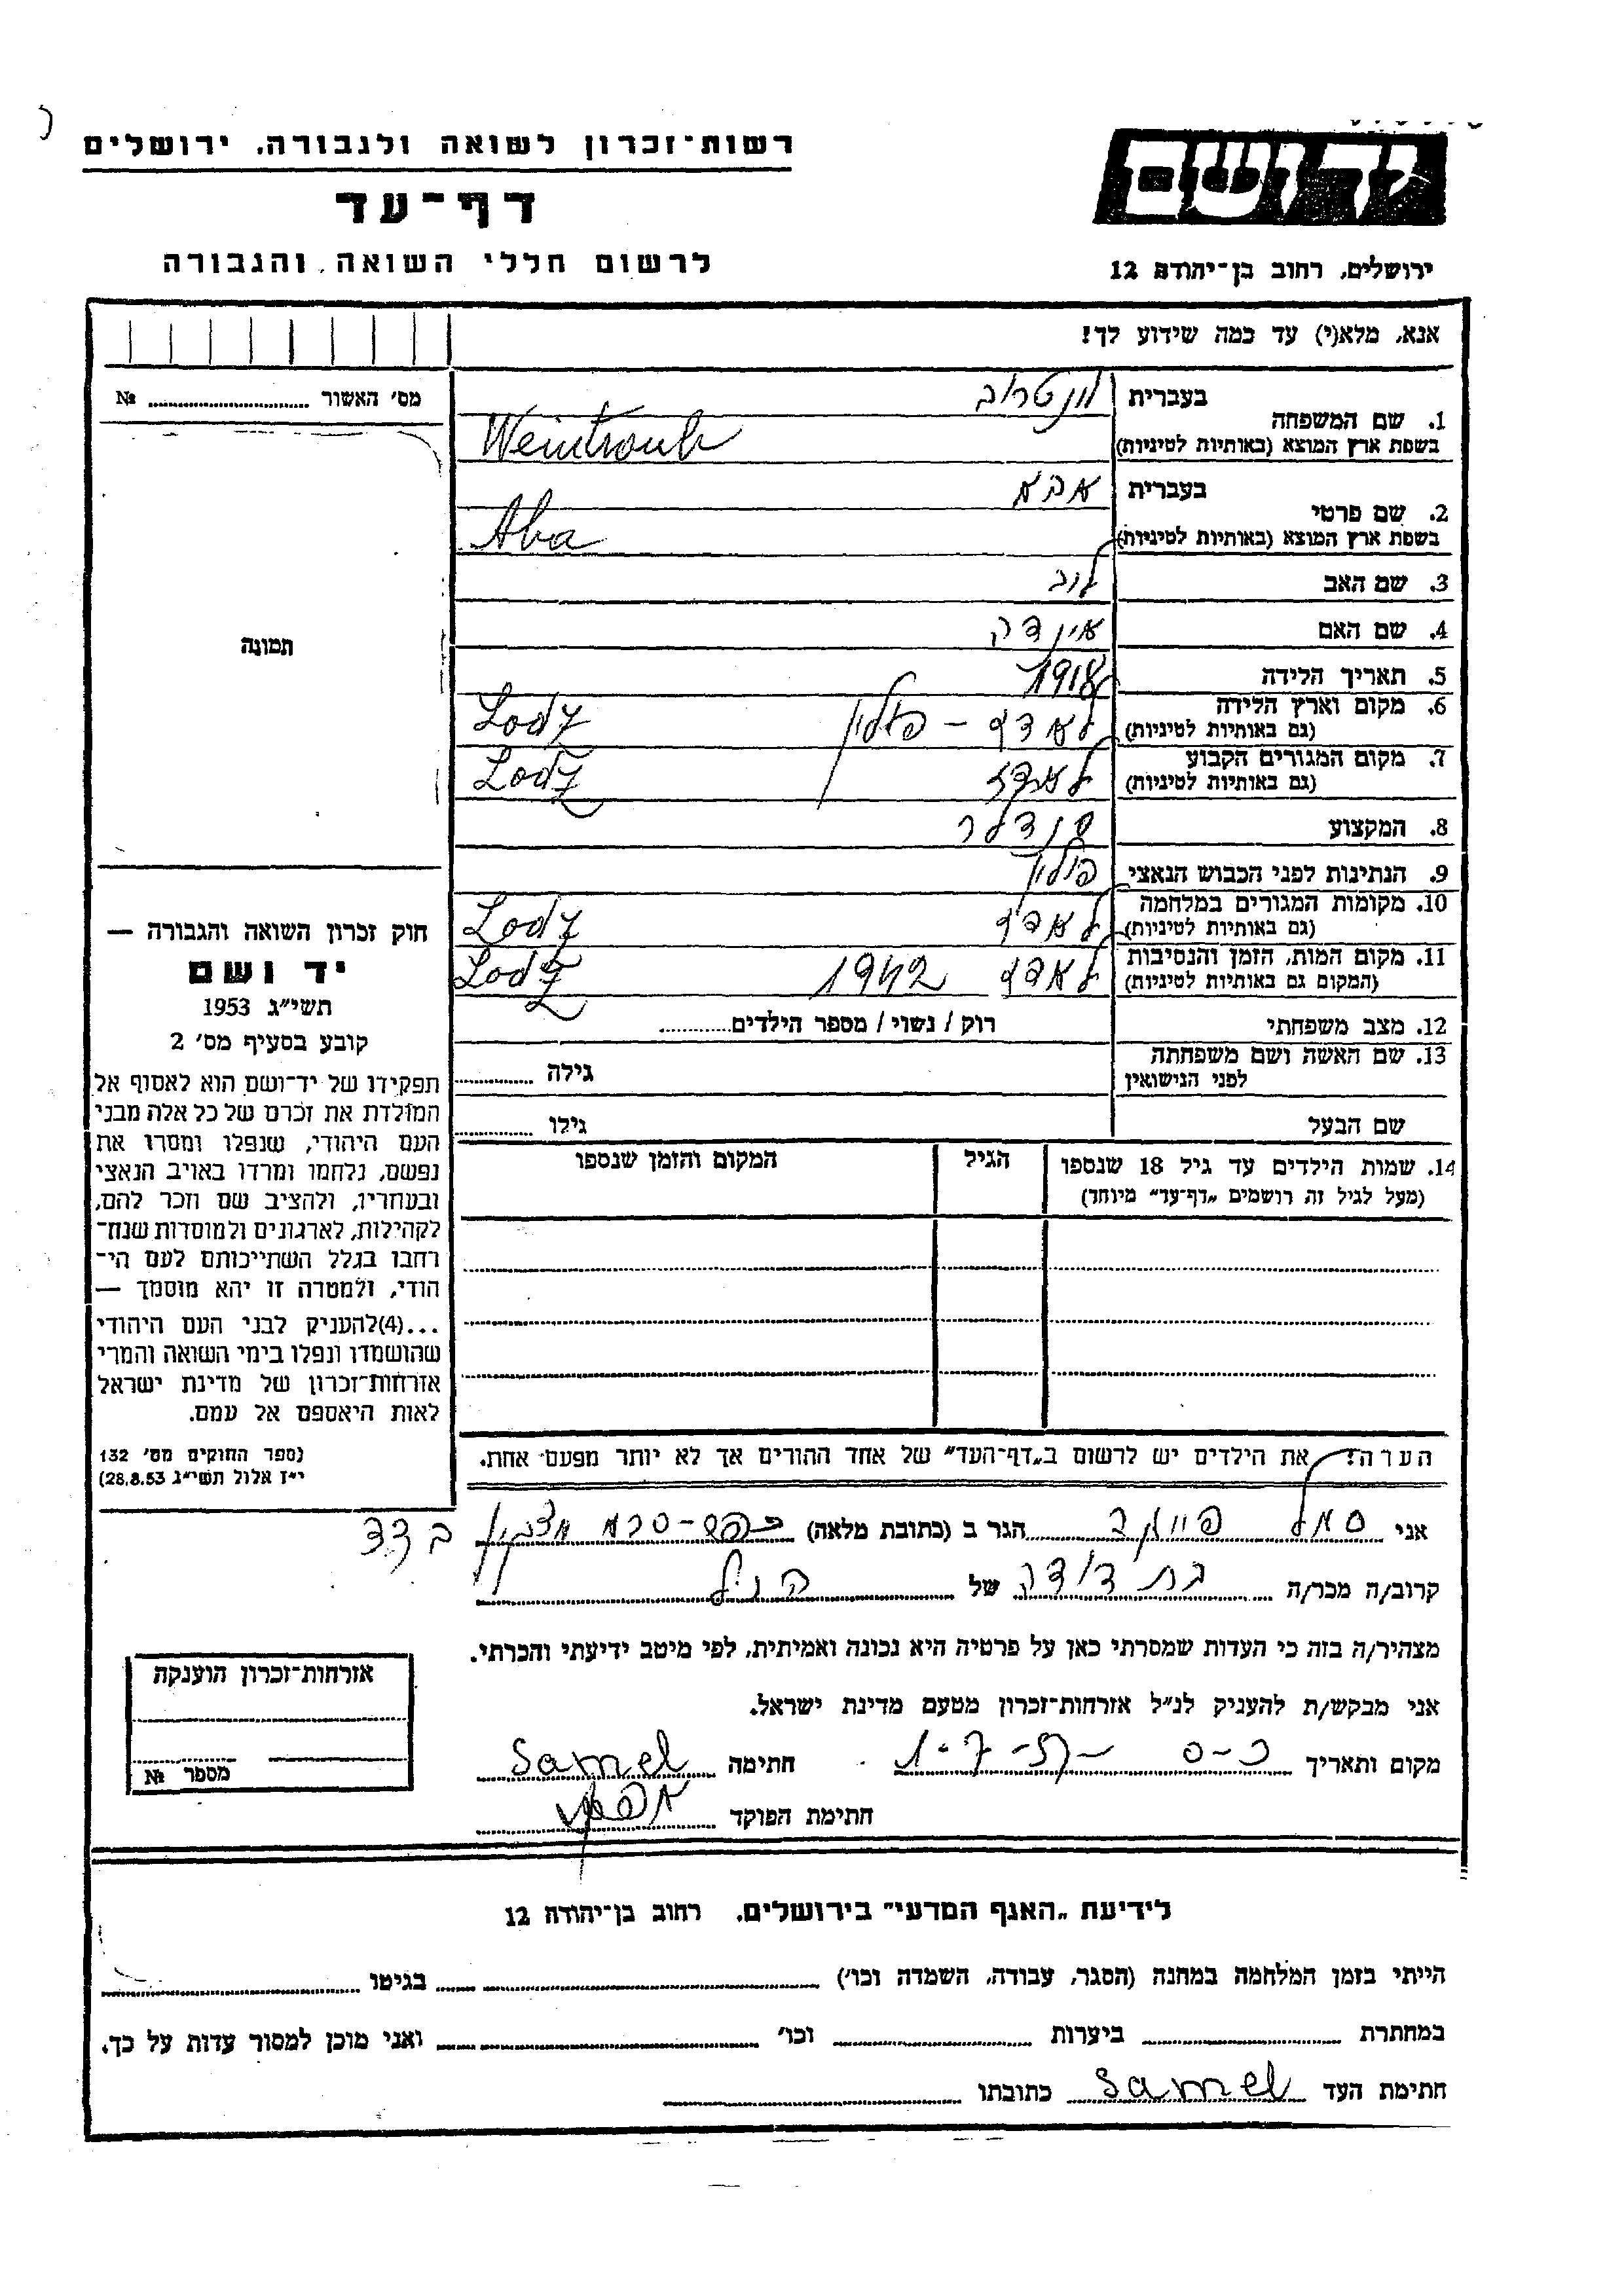 רשות-זכרון לשואה ולגבורה, ירושלים
דף-עד
לרשום חללי השואה והגבורה
ידושם
ירושלים, רחוב בן-יהודה 12
אנא, מלא(י) עד כמה שידוע לך!
מס' האשור № ....................
תמונה
1. שם המשפחה בעברית ונטרוב
בשפת ארץ המוצא (באותיות לטיניות) Weintraub
2. שם פרטי בעברית אבא
בשפת ארץ המוצא (באותיות לטיניות) Aba
3. שם האב לוב
4. שם האם אינדה
5. תאריך הלידה 1918
6. מקום וארץ הלידה (גם באותיות לטיניות) לאדז - פולין Lodz
7. מקום המגורים הקבוע (גם באותיות לטיניות) לאדז Lodz
8. המקצוע סנדלר
9. הנתינות לפני הכבוש הנאצי פולין
10. מקומות המגורים במלחמה (גם באותיות לטיניות) לאדז Lodz
11. מקום המות, הזמן והנסיבות (המקום גם באותיות לטיניות) לאדז 1942 Lodz
12. מצב משפחתי רוק / נשוי / מספר הילדים..........
13. שם האשה ושם משפחתה לפני הנישואין גילה ..........
שם הבעל גילו ..........
14. שמות הילדים עד גיל 18 שנספו הגיל המקום והזמן שנספו
(מעל לגיל זה רושמים "דף-עד" מיוחד)
חוק זכרון השואה והגבורה —
יד ושם
תשי"ג 1953
קובע בסעיף מס' 2
תפקידו של יד-ושם הוא לאסוף אל
המולדת את זכרם של כל אלה מבני
העם היהודי, שנפלו ומסרו את
נפשם, נלחמו ומרדו באויב הנאצי
ובעוזריו, ולהציב שם וזכר להם,
לקהילות, לארגונים ולמוסדות שנח-
רבו בגלל השתייכותם לעם הי-
הודי, ולמטרה זו יהא מוסמך —
...(4)להעניק לבני העם היהודי
שהושמדו ונפלו בימי השואה והמרי
אזרחות-זכרון של מדינת ישראל
לאות היאספם אל עמם.
(ספר החוקים מס' 132
י"ז אלול תשי"ג 28.8.53)
הערה! את הילדים יש לרשום ב"דף-העד" של אחד ההורים אך לא יותר מפעם אחת.
אני סמל הגר ב (כתובת מלאה)
קרוב/ה מכר/ה בת דודה של הנ"ל
מצהיר/ה בזה כי העדות שמסרתי כאן על פרטיה היא נכונה ואמיתית, לפי מיטב ידיעתי והכרתי.
אני מבקש/ת להעניק לנ"ל אזרחות-זכרון מטעם מדינת ישראל.
מקום ותאריך חתימה Samel
חתימת הפוקד
אזרחות-זכרון הוענקה
מספר №
לידיעת "האגף המדעי" בירושלים, רחוב בן-יהודה 12
הייתי בזמן המלחמה במחנה (הסגר, עבודה, השמדה וכו') .................... בגיטו ....................
במחתרת .................... ביערות .................... וכו' .................... ואני מוכן למסור עדות על כך.
חתימת העד Samel כתובתו ....................